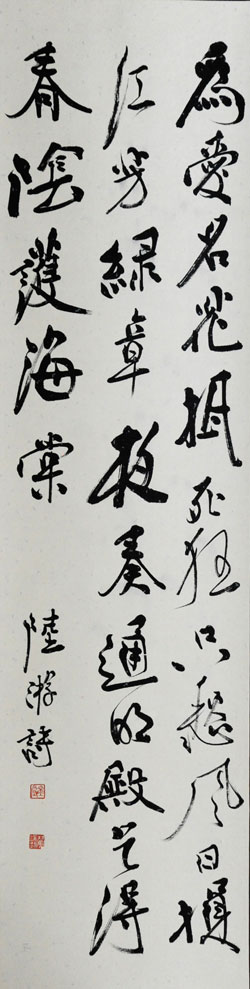 爲愛名花抵死狂只愁風日損
紅芳綠章夜奏通明殿乞得
春陰護海棠
陸游詩